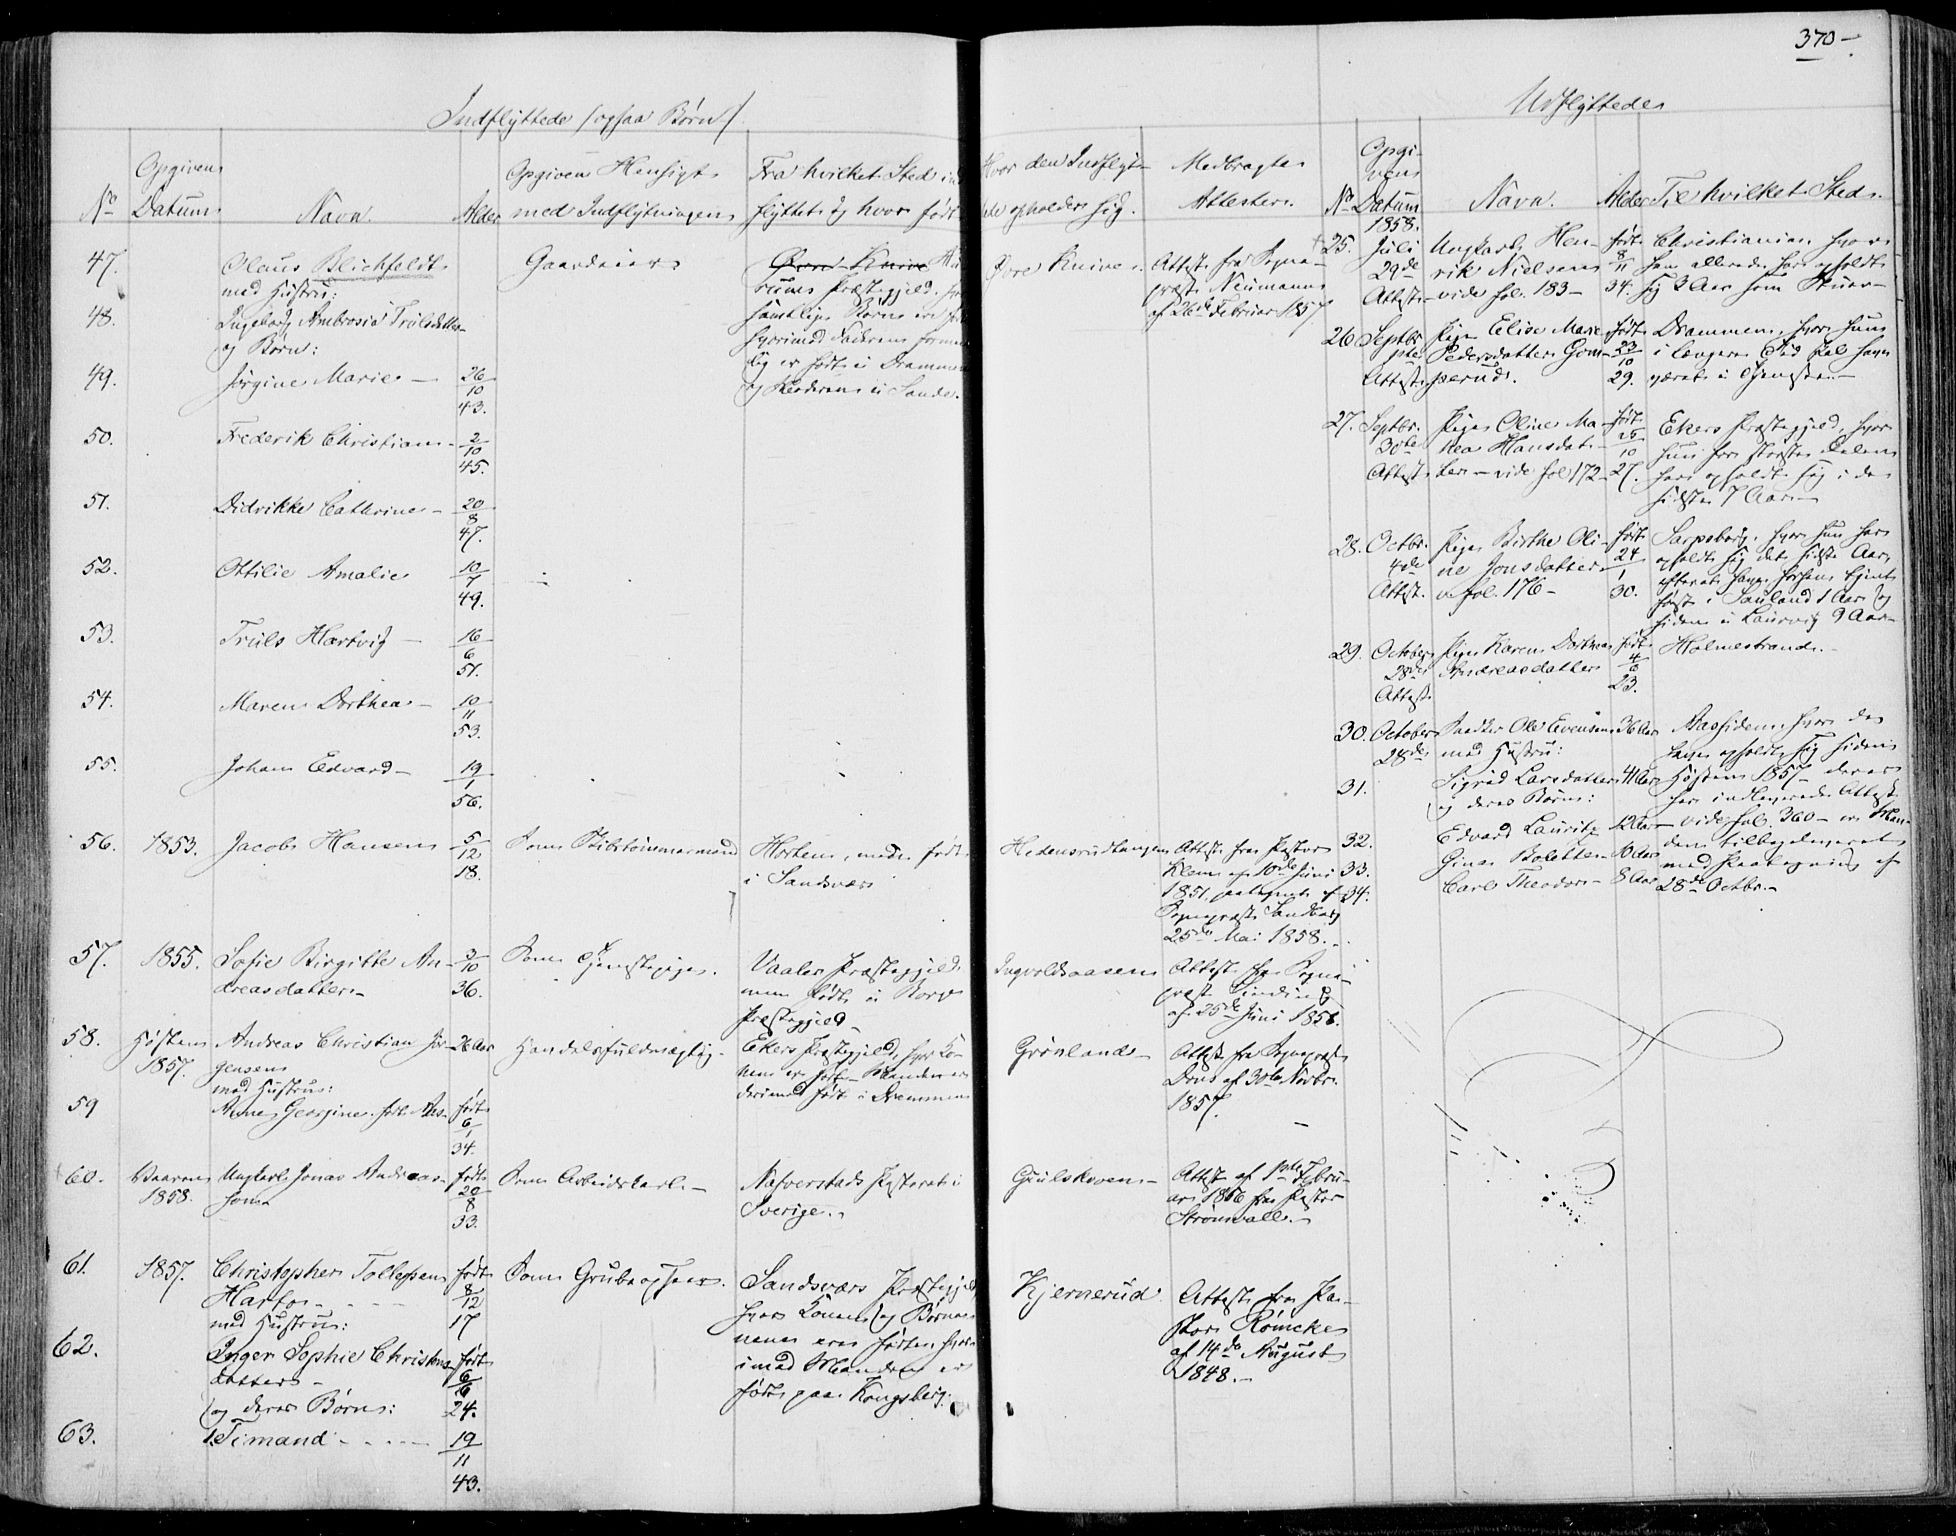 370 –
Indflyttede (ogsaa Børn)
Udflyttede
No
Opgivens
Datum
Navn.
Alder
Opgiven Hensigt
med Indflytningen
Fra hvilket Sted
flyttet og hvor født
Hvor den Indflyt-
opholder sig.
Medbragte
Attester.
No
Opgi-
vens
Datum
1858.
Navn.
Alder
Til hvilket Sted.
47.
Olaus Blichfeldt
med Hustru:
Gaardeier
Øvre Knive
Præstegjeld,
samtlige Børn ere
hvorimod Faderen
lig er født i Drammen
og Moderen i Sande.
Øvre Knive.
Attest fra Sogne-
præst Neumann
af 26de Februar 1857.
48.
Ingeborg Ambrosia Trulsdatter
og Børn:
49.
Jørgine Marie –
26/10
43.
50.
Frederik Christian –
2/10
45.
51.
Didrikke Cathrine –
20/8
47.
52.
Ottilie Amalie
10/7
49.
53.
Truls Hartvig –
16/6
51.
54.
Maren Dorthea –
10/11
53.
55.
Johan Edvard –
19/1
56.
56.
1853.
Jacob Hansen
5/12
18.
Som Skibstømmermand
Horten, men født
i Sandsvær
Hedensrudtangen
Attest fra Pastor
Klem af 10de Juni
1851, paategnet af
Sognepræst Sandberg
25de Mai 1858.
57.
1855.
Sofie Birgitte An-
dreasdatter –
3/10
36.
Som Tjenestepige.
Vaaler Præstegjeld
men født i Borge
Præstegjeld –
Ingvoldsaasen
Attest fra Sogne-
præst Sinding
af 25de Juni 1856.
58.
Høsten
1857.
Andreas Christian Jør-
gensen
med Hustru:
26 Aar
Handelsfuldmægtig.
Ekers Præstegjeld, hvor Ko-
nen er født – Manden er
derimod født i Drammen
Grønland –
Attest fra Sognepræst
Dons af 30te Novbr.
1857.
59
Anne Georgine født Aas
født
6/1
34.
60.
Vaaren
1858.
Ungkarl Jonas Andreas-
son
født
20/8
33.
Som Arbeidskarl –
Nafverstads Pastorat i
Sverige.
Gulskoven –
Attest af 1ste Febru-
ar 1856 fra Pastor
Strømvall. –
61.
1857.
Christopher Tollefsen
Harfos – – – –
med Hustru:
født
8/12
17
Som Grubeopseer.
Sandsværs Præstegjeld
hvor Konen og Børne-
nene ere fødte, hvor-
imod Manden er
født paa Kongsberg.
Kjernerud
Attest fra Pa-
stor Römcke
af 14de August
1848. –
62.
Inger Sophie Christens-
datter –
og deres Børn:
født
6/6
24.
63.
1. Timand – – – –
19/11
43.
25.
Juli
29de
Attest
Ungkarl Hen-
rik Nielsen
– vide fol. 183 –
født
8/11
34.
Christiania, hvor
han allerede har opholdt
sig 3 Aar som
26
Septbr
Attest
Pige Elise Marie
Pedersdatter Gom-
perud.
født
23/10
29.
Drammen, hvor hun
i længere Tid skal have
været i Tjeneste –
27.
Septbr.
30te
Attest
Pige Oline Ma-
thea Hansdat-
ter – vide fol 172 –
født
25/10
27.
Ekers Præstegjeld, hvor
hun for største Delen
har opholdt sig i de
sidste 7 Aar –
28.
Octbr.
4de
Attest.
Pige Birthe Oli-
ne Jonsdatter
v. fol. 176 –
født
24/1
30.
Sarpsborg, hvor hun har
opholdt sig det sidste Aar,
efterat have forhen tjent
først i Sauland 1 Aar og
siden i Laurvig 9 Aar –
29.
October
28de
Attest
Pige Karen Dorthea
Andreasdatter
født
23.
Holmestrand. –
30.
October
28de
Ole Evensen
med Hustru:
36 Aar
Aassiden, hvor de
have opholdt sig siden
Høsten 1857 – deres
her indleverede Attest
– vide fol. 360 – er Man-
den tilbageleveret
med Paategning af
28de Octbr. –
31.
Sigrid Larsdatter
og deres Børn:
41 Aar
32.
Edvard Lauritz
12 Aar
33.
Gina Bolette –
10 Aar
34.
Carl Theodor –
8 Aar